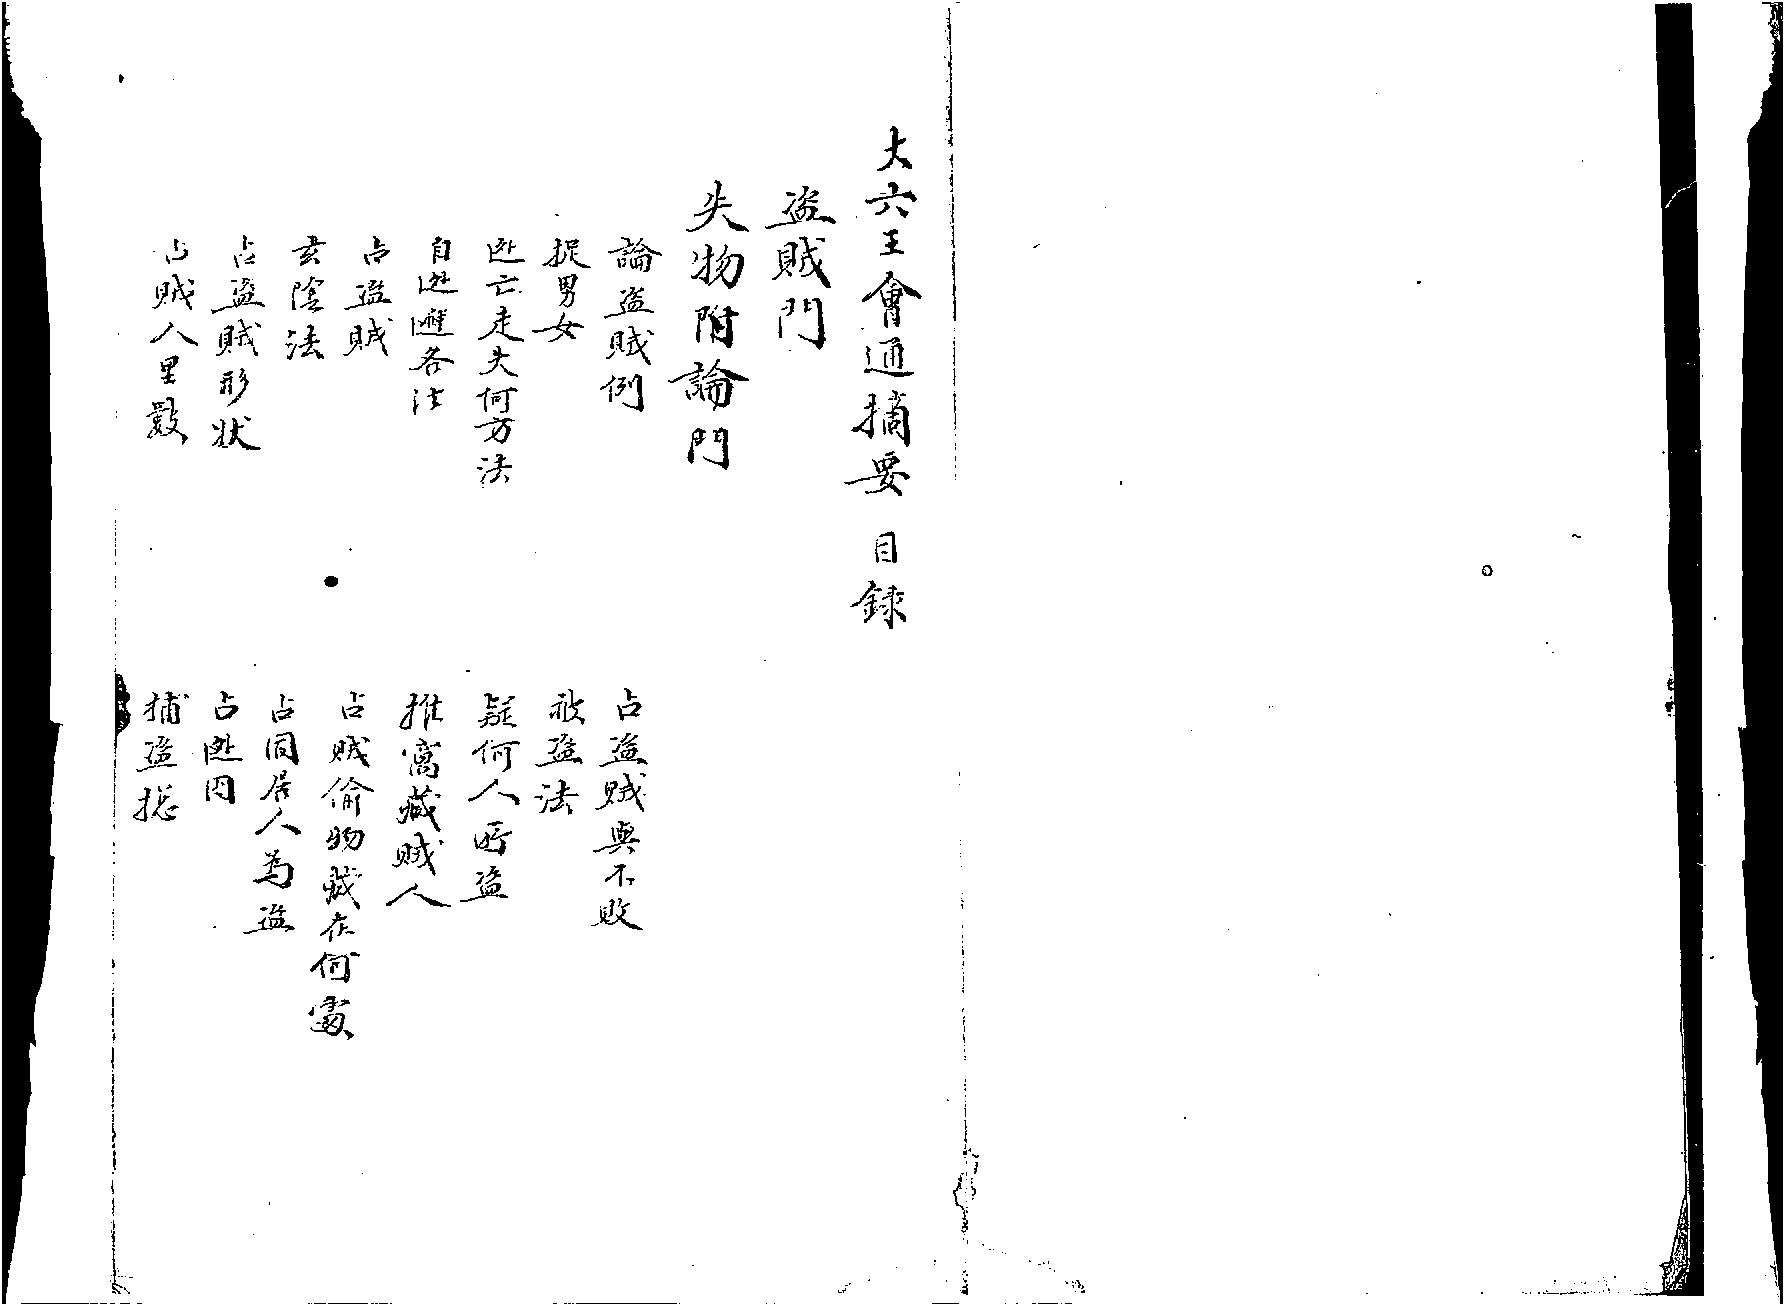 大六壬會通摘要 目録
盗賊門
失物附論門
論盗賊例
占盗賊與不敗
捉男女
被盗法
迯亡走失何方法
疑何人所盗
自迯遯各法
推窩藏賊人
占盗賊
占賊偷物藏在何處
玄陰法
占同居人為盗
占盗賊形状
占迯因
占賊人里數
捕盗捴